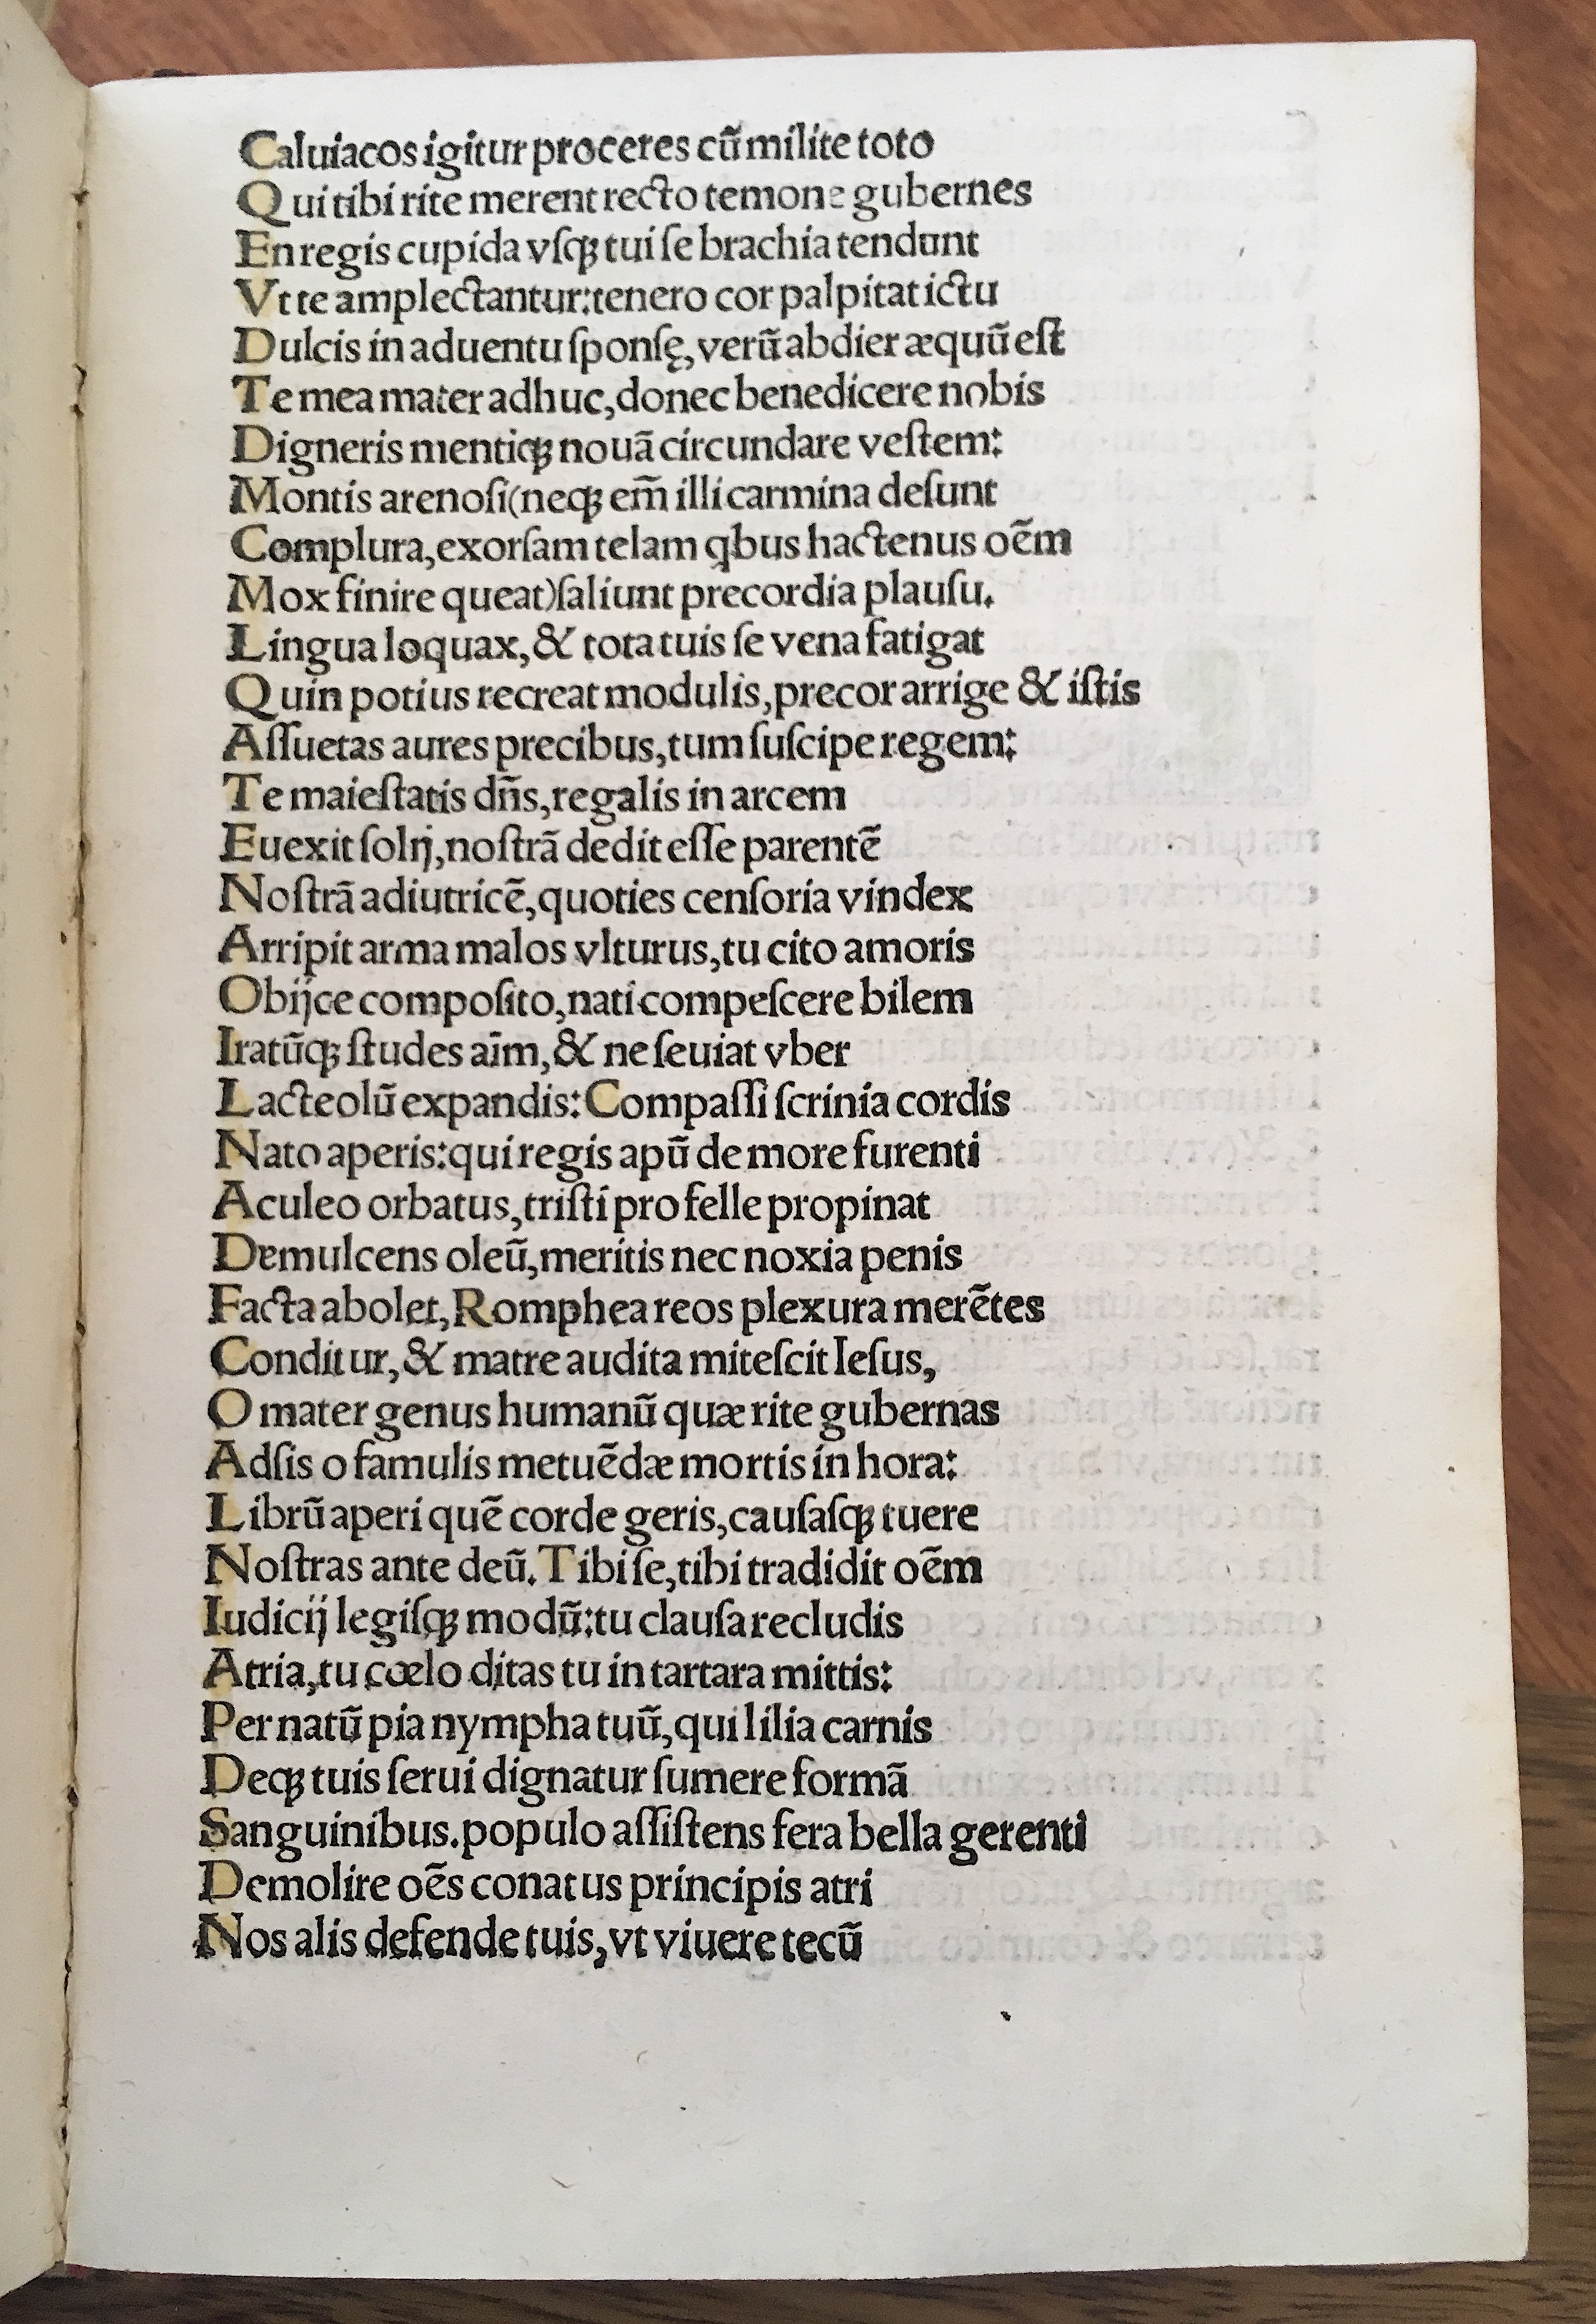 Caluiacos igitur proceres cũ milite toto
Qui tibi rite merent recto temone gubernes
En regis cupida vſqꝫ tui ſe brachia tendunt
Vt te amplectantur: tenero cor palpitat ictu
Dulcis in aduentu ſponſę, verũ abdier æquũ eſt
Te mea mater adhuc, donec benedicere nobis
Digneris mentiqꝫ nouã circundare veſtem:
Montis arenoſi (neqꝫ em̃ illi carmina deſunt
Complura, exorſam telam qbus hactenus oẽm
Mox finire queat) ſaliunt precordia plauſu.
Lingua loquax, & tota tuis ſe vena fatigat
Quin potius recreat modulis, precor arrige & iſtis
Aſſuetas aures precibus, tum ſuſcipe regem:
Te maieſtatis dñs, regalis in arcem
Euexit ſolij, noſtrã dedit eſſe parentẽ
Noſtrã adiutricẽ, quoties cenſoria vindex
Arripit arma malos vlturus, tu cito amoris
Obijce compoſito, nati compeſcere bilem
Iratũqꝫ ſtudes aim̃, & ne ſeuiat vber
Lacteolũ expandis: Compaſſi ſcrinia cordis
Nato aperis: qui regis apũ de more furenti
Aculeo orbatus, triſti pro felle propinat
Demulcens oleũ, meritis nec noxia penis
Facta abolet, Romphea reos plexura merẽtes
Conditur, & matre audita miteſcit Ieſus,
O mater genus humanũ quæ rite gubernas
Adſis o famulis metuẽdæ mortis in hora:
Librũ aperi quẽ corde geris, cauſaſqꝫ tuere
Noſtras ante deũ. Tibi ſe, tibi tradidit oẽm
Iudicij legiſqꝫ modũ: tu clauſa recludis
Atria, tu cœlo ditas tu in tartara mittis:
Per natũ pia nympha tuũ, qui lilia carnis
Deqꝫ tuis ſerui dignatur ſumere formã
Sanguinibus. populo aſſiſtens fera bella gerenti
Demolire oẽs conatus principis atri
Nos alis defende tuis, vt viuere tecũ